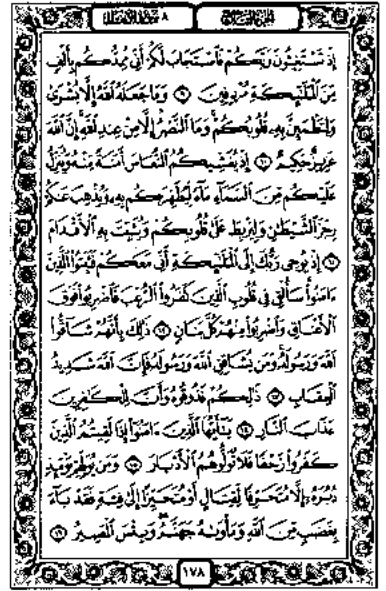 سورة الأنفال ٨ الجزء التاسع
إِذْ تَسْتَغِيثُونَ رَبَّكُمْ فَاسْتَجَابَ لَكُمْ أَنِّي مُمِدُّكُم بِأَلْفٍ
مِّنَ الْمَلَٰٓئِكَةِ مُرْدِفِينَ ٩ وَمَا جَعَلَهُ اللَّهُ إِلَّا بُشْرَىٰ
وَلِتَطْمَئِنَّ بِهِۦ قُلُوبُكُمْ ۚ وَمَا النَّصْرُ إِلَّا مِنْ عِندِ اللَّهِ ۚ إِنَّ اللَّهَ
عَزِيزٌ حَكِيمٌ ١٠ إِذْ يُغَشِّيكُمُ النُّعَاسَ أَمَنَةً مِّنْهُ وَيُنَزِّلُ
عَلَيْكُم مِّنَ السَّمَآءِ مَآءً لِّيُطَهِّرَكُم بِهِۦ وَيُذْهِبَ عَنكُمْ
رِجْزَ الشَّيْطَٰنِ وَلِيَرْبِطَ عَلَىٰ قُلُوبِكُمْ وَيُثَبِّتَ بِهِ الْأَقْدَامَ
١١ إِذْ يُوحِي رَبُّكَ إِلَى الْمَلَٰٓئِكَةِ أَنِّي مَعَكُمْ فَثَبِّتُوا الَّذِينَ
ءَامَنُوا ۚ سَأُلْقِي فِي قُلُوبِ الَّذِينَ كَفَرُوا الرُّعْبَ فَاضْرِبُوا فَوْقَ
الْأَعْنَاقِ وَاضْرِبُوا مِنْهُمْ كُلَّ بَنَانٍ ١٢ ذَٰلِكَ بِأَنَّهُمْ شَآقُّوا
اللَّهَ وَرَسُولَهُۥ ۚ وَمَن يُشَاقِقِ اللَّهَ وَرَسُولَهُۥ فَإِنَّ اللَّهَ شَدِيدُ
الْعِقَابِ ١٣ ذَٰلِكُمْ فَذُوقُوهُ وَأَنَّ لِلْكَٰفِرِينَ
عَذَابَ النَّارِ ١٤ يَٰٓأَيُّهَا الَّذِينَ ءَامَنُوٓا إِذَا لَقِيتُمُ الَّذِينَ
كَفَرُوا زَحْفًا فَلَا تُوَلُّوهُمُ الْأَدْبَارَ ١٥ وَمَن يُوَلِّهِمْ يَوْمَئِذٍ
دُبُرَهُۥٓ إِلَّا مُتَحَرِّفًا لِّقِتَالٍ أَوْ مُتَحَيِّزًا إِلَىٰ فِئَةٍ فَقَدْ بَآءَ
بِغَضَبٍ مِّنَ اللَّهِ وَمَأْوَىٰهُ جَهَنَّمُ ۖ وَبِئْسَ الْمَصِيرُ ١٦
١٧٨